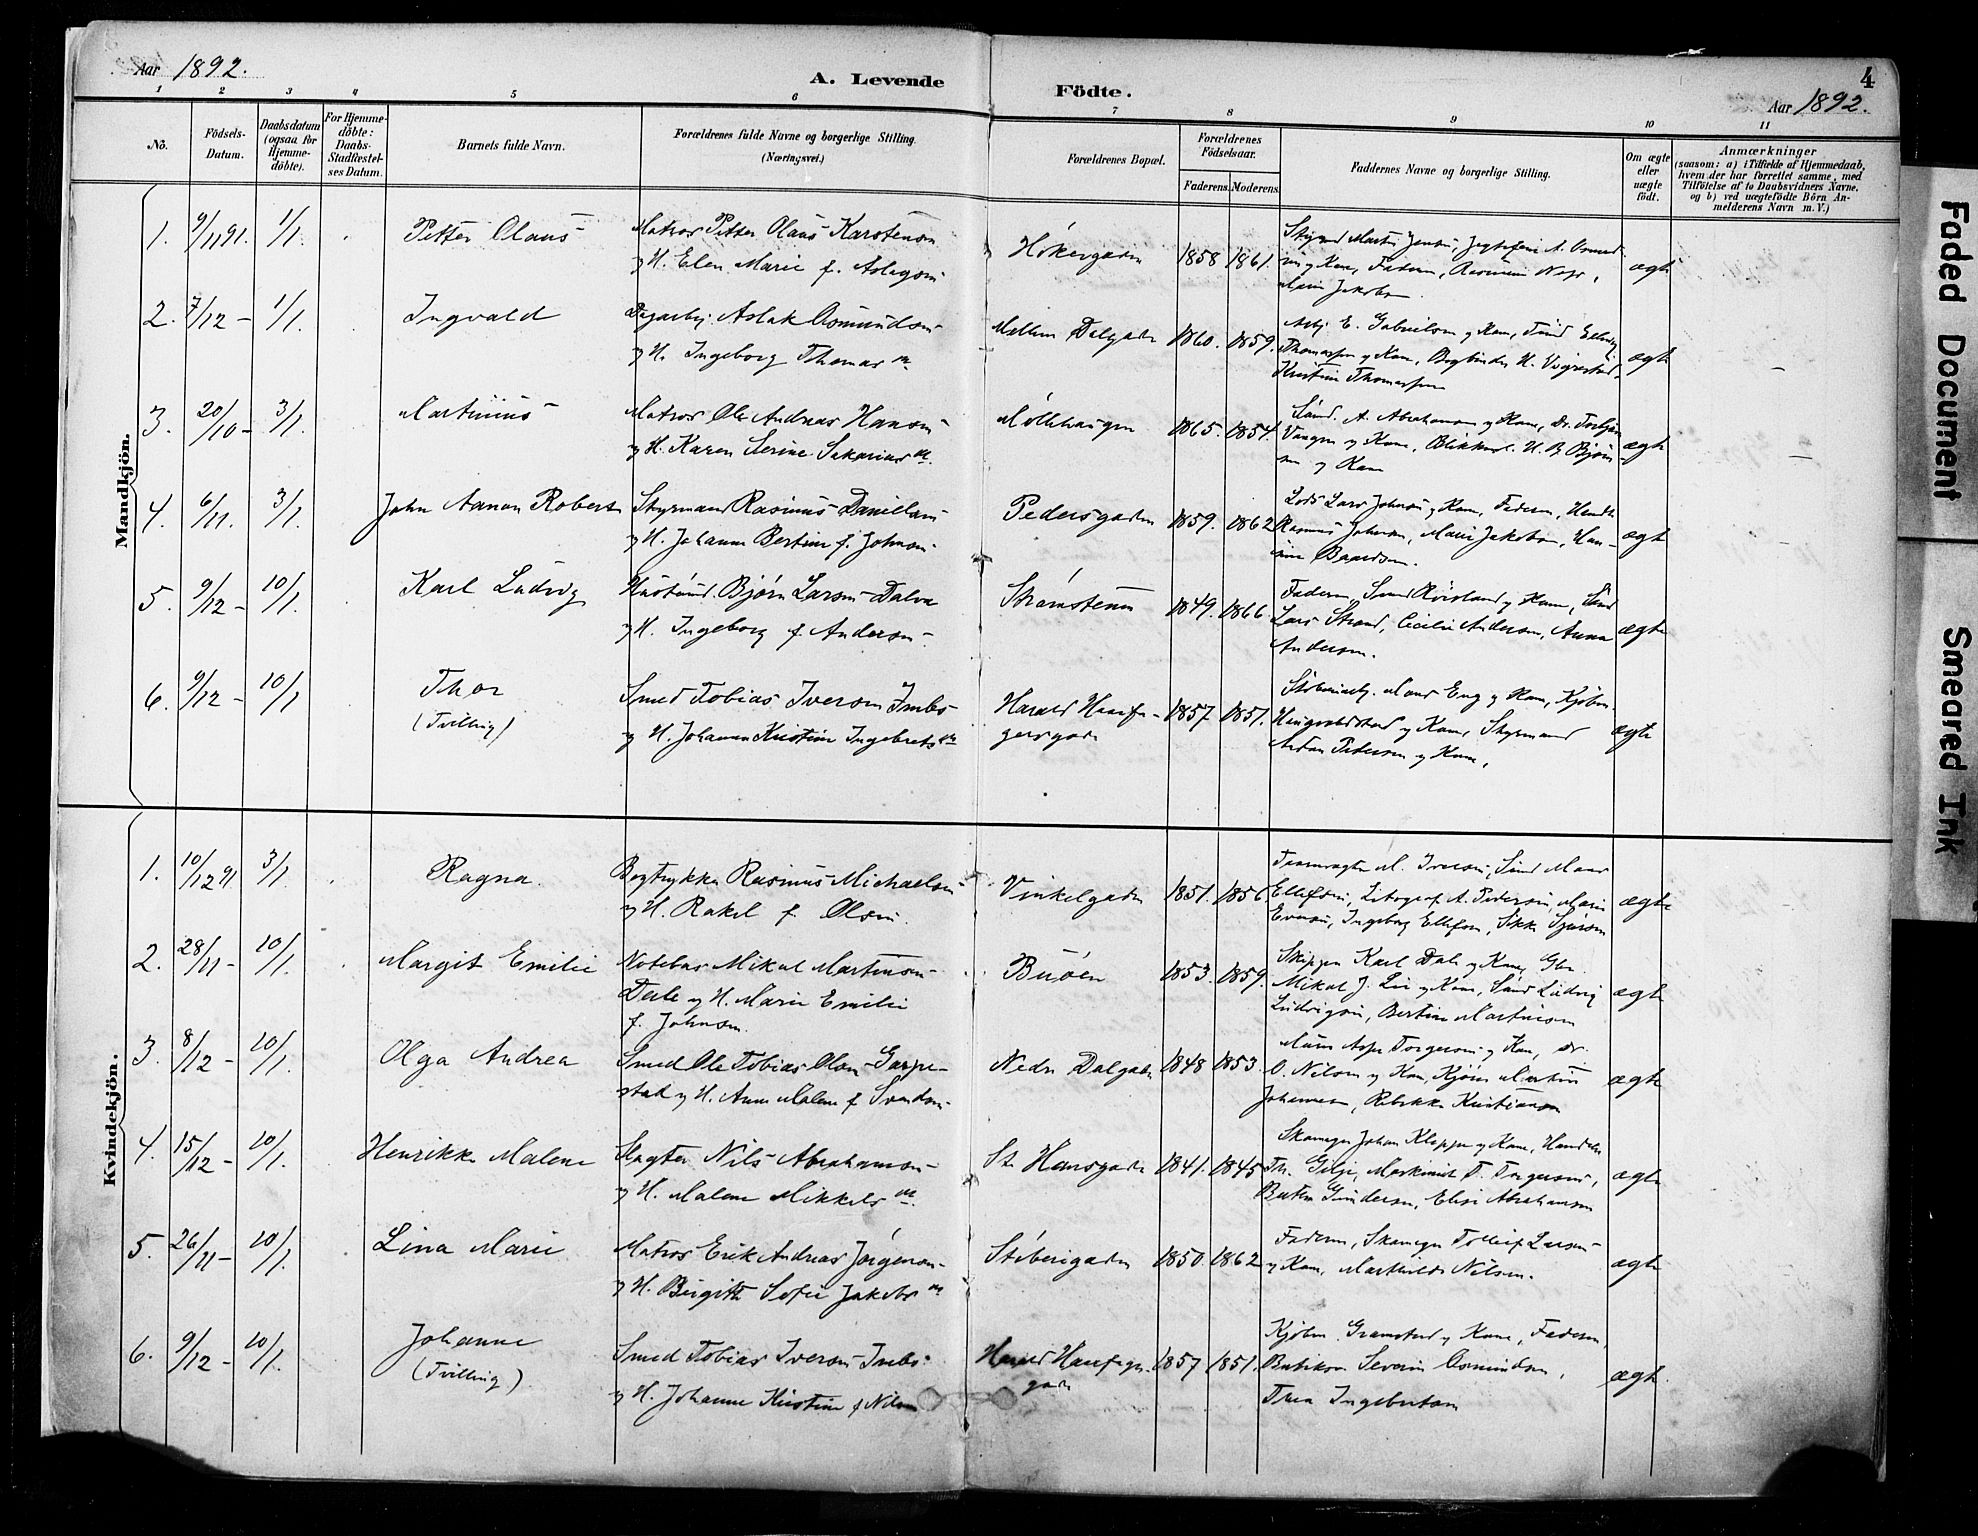 Aar 1892.
A. Levende Födte.
4
Aar 1892.
1 2 3 4 5 6 7 8 9 10 11
Nö.
Födsels-Datum.
Daabsdatum (ogsaa for Hjemme-döbte).
For Hjemme-döbte: Daabs-Stadfæstel-ses Datum.
Barnets fulde Navn.
Forældrenes fulde Navne og borgerlige Stilling. (Næringsvei.)
Forældrenes Bopæl.
Forældrenes Födselsaar.
Faderens. Moderens.
Faddernes Navne og borgerlige Stilling.
Om ægte eller uægte födt.
Anmærkninger
(saasom: a) i Tilfælde af Hjemmedaab, hvem der har forrettet samme, med Tilföielse af to Daabsvidners Navne. og b) ved uægtefödte Börn An-melderens Navn m.V.)
Mandkjön.
1. 9/11 91. 1/1. Petter Olaus Matros Petter Olaus Karstensen
og H. Elen Marie f. Aslagsen Høkergaden 1858 1861. ægte
2. 7/12 - 1/1. Ingvald Aslak Osmundsen
og H. Ingeborg Thomas Mellem Dalgaden 1860. 1859. E. Gabrielsen og Kone,
Thomassen og Kone, Bogbinder
Thomassen ægte
3. 20/10 - 3/1. Martinius Matros Ole Andreas Hansen
og H. Karen Serine Sakarias Møllehaugen 1865. 1854. A. Abrahamsen og Kone,
og Kone
og Kone ægte
4. 6/11. 3/1. John Aanon Robert Styrmand Rasmus Danielsen
og H. Johanne Bertine f. Johnsen Pedersgaden 1859. 1862 Lods Lars Johnsen og Kone, Faderen,
Rasmus Johnsen, Marie Jakobsen,
Baardsen. ægte
5. 9/12 - 10/1. Karl Ludvig Bjørn Larsen Dalva
og H. Ingeborg f. Andersen Strømstenen 1849. 1866. Faderen, og Kone,
Lars Strand, Cecilie Andersen, Anna
Andersen. ægte
6. 9/12 - 10/1. Thor
(Tvilling) Smed Tobias Iversen Imbs
og H. Johanne Kristine Ingebrets Harald Haarfa-
gersgade 1857. 1851. Eng og Kone, Kjøbm.
og Kone, Styrmand
Pedersen og Kone, ægte
Kvindekjön.
1. 10/12 91 3/1. Ragna. Bogtrykker Rasmus Michaelsen
og H. Rakel f. Olsen Vinkelgaden 1851. 1856 M. Iversen,
Ellefsen, Litograf A. Pedersen, Marie
Iversen, Ingeborg Ellefsen, ægte
2. 28/11 - 10/1. Margit Emilie Notebas Mikal Martinsen
Dale og H. Marie Emilie
f. Johnsen. Buøen 1853. 1859. Skipper Karl Dale og Kone,
Mikal J. Lie og Kone, Ludvig
Ludvigsen, Bertine Martinsen ægte
3. 8/12 - 10/1. Olga Andrea Smed Ole Tobias Olsen Garpe-
stad og H. Anne Malene f. Svendsen Nedre Dalgade 1848 1853. Torgersen og Kone,
O. Nilsen og Kone, Martin
Johannesen, Rebekka Kristiansen ægte
4. 15/12 - 10/1. Henrikke Malene Slagter Nils Abrahamsen
og H. Malene Mikkels St. Hansgade 1841. 1845 Skomager Johan Kleppe og Kone,
Th. Gilje, Maskinist T. Torgersen,
Gundersen, Elise Abrahamsen ægte
5. 26/11 - 10/1. Lina Marie Matros Erik Andreas Jørgensen
og H. Birgitte Sofie Jakobs Støberigaden 1850. 1862 Faderen, Skomager Tolleif Larsen
og Kone, Marthilde Nilsen. ægte
6. 9/12 - 10/1. Johanne
(Tvilling) Smed Tobias Iversen Imbs
og H. Johanne Kristine f. Nilsen Harald Haarfager
gade 1857 1851. Kjøbm. Gramstad og Kone, Faderen,
Severin Osmundsen,
Trea Ingebretsen ægte
Faded Document
Smeared Ink